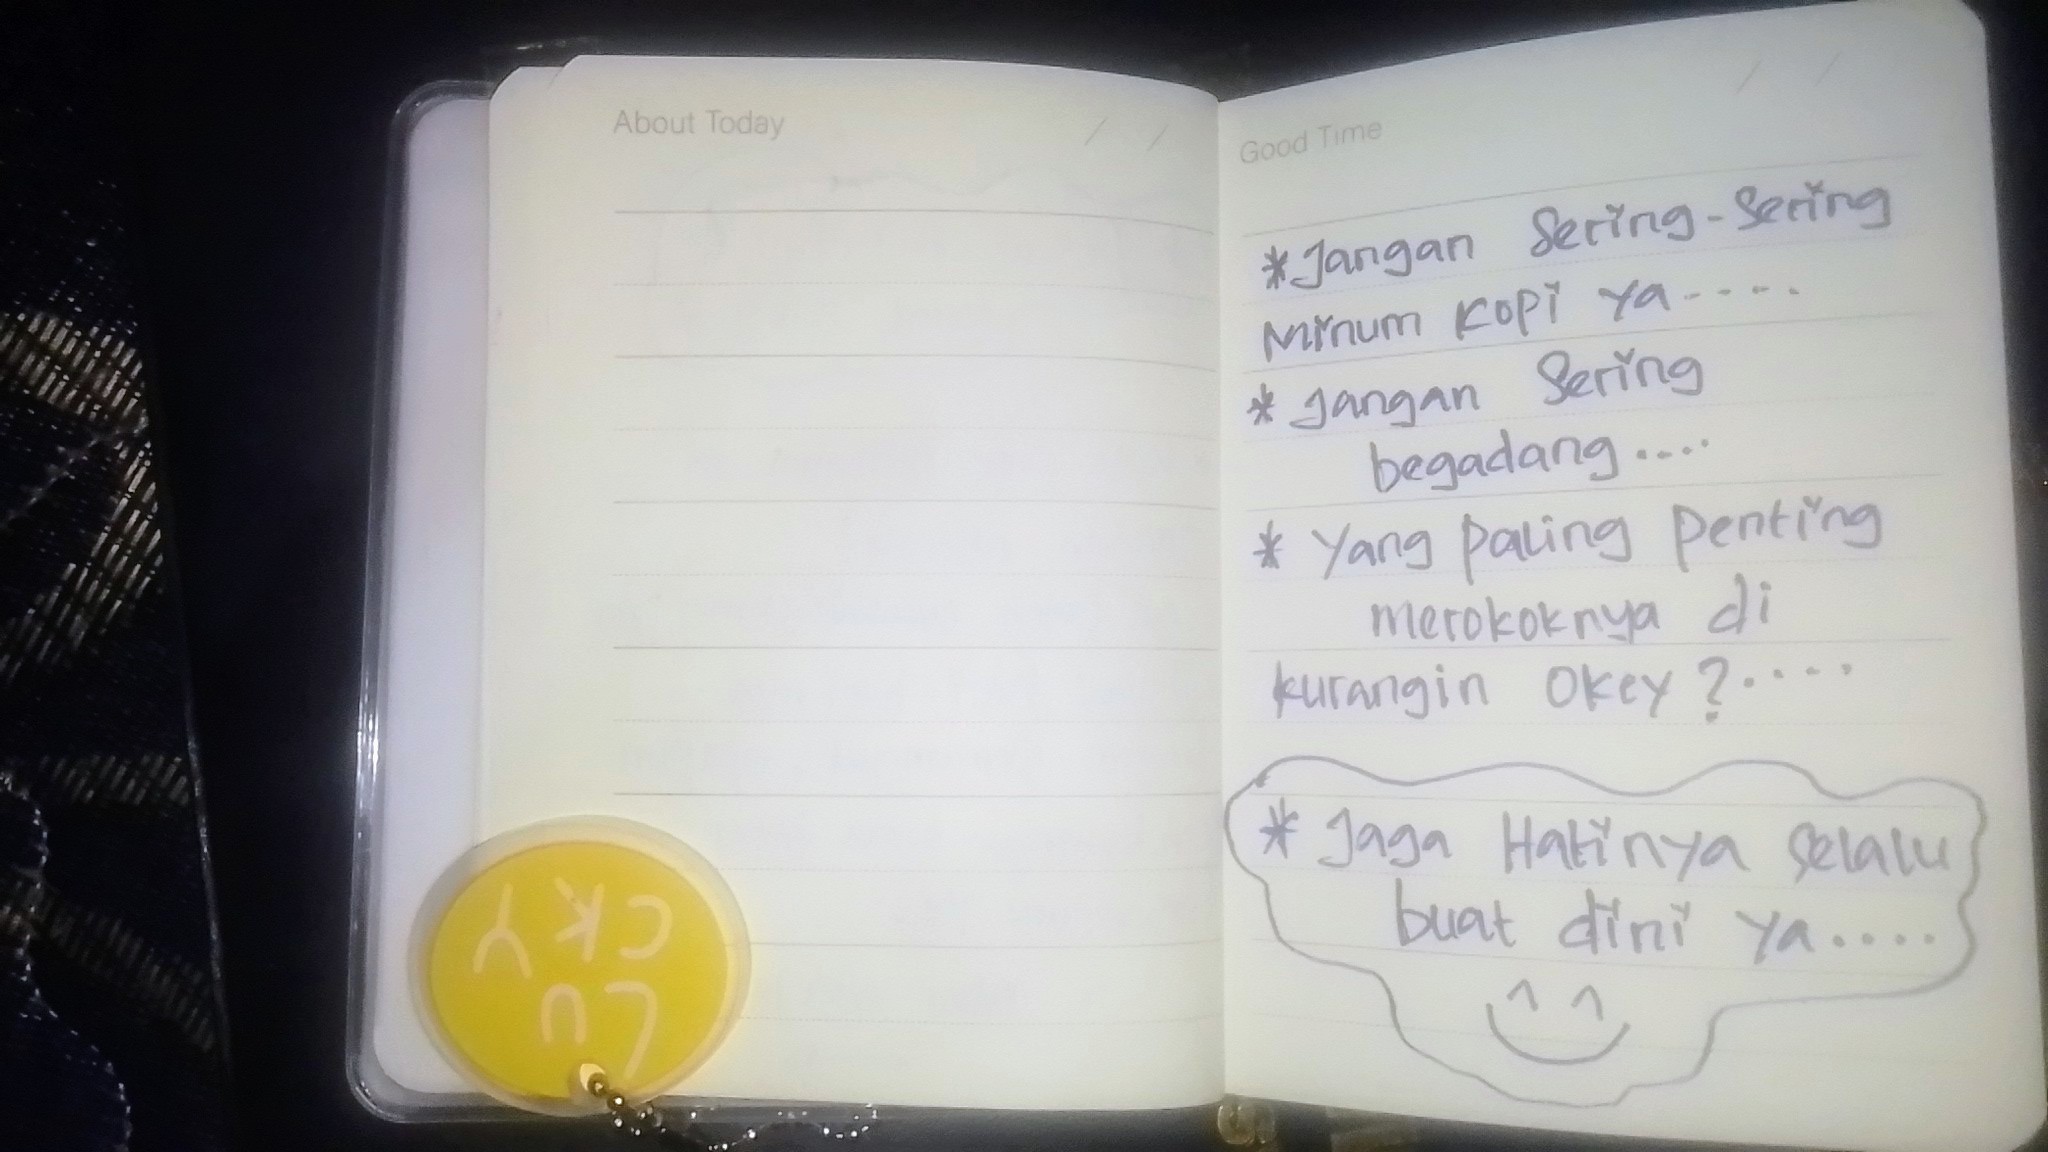 About Today
Good Time
*Jangan Sering-Sering
Minum Kopi ya.....
* Jangan Sering
begadang....
* Yang paling penting
merokoknya di
kurangin Okey?....
* Jaga Hatinya Selalu
buat dini ya....
LU
CKY